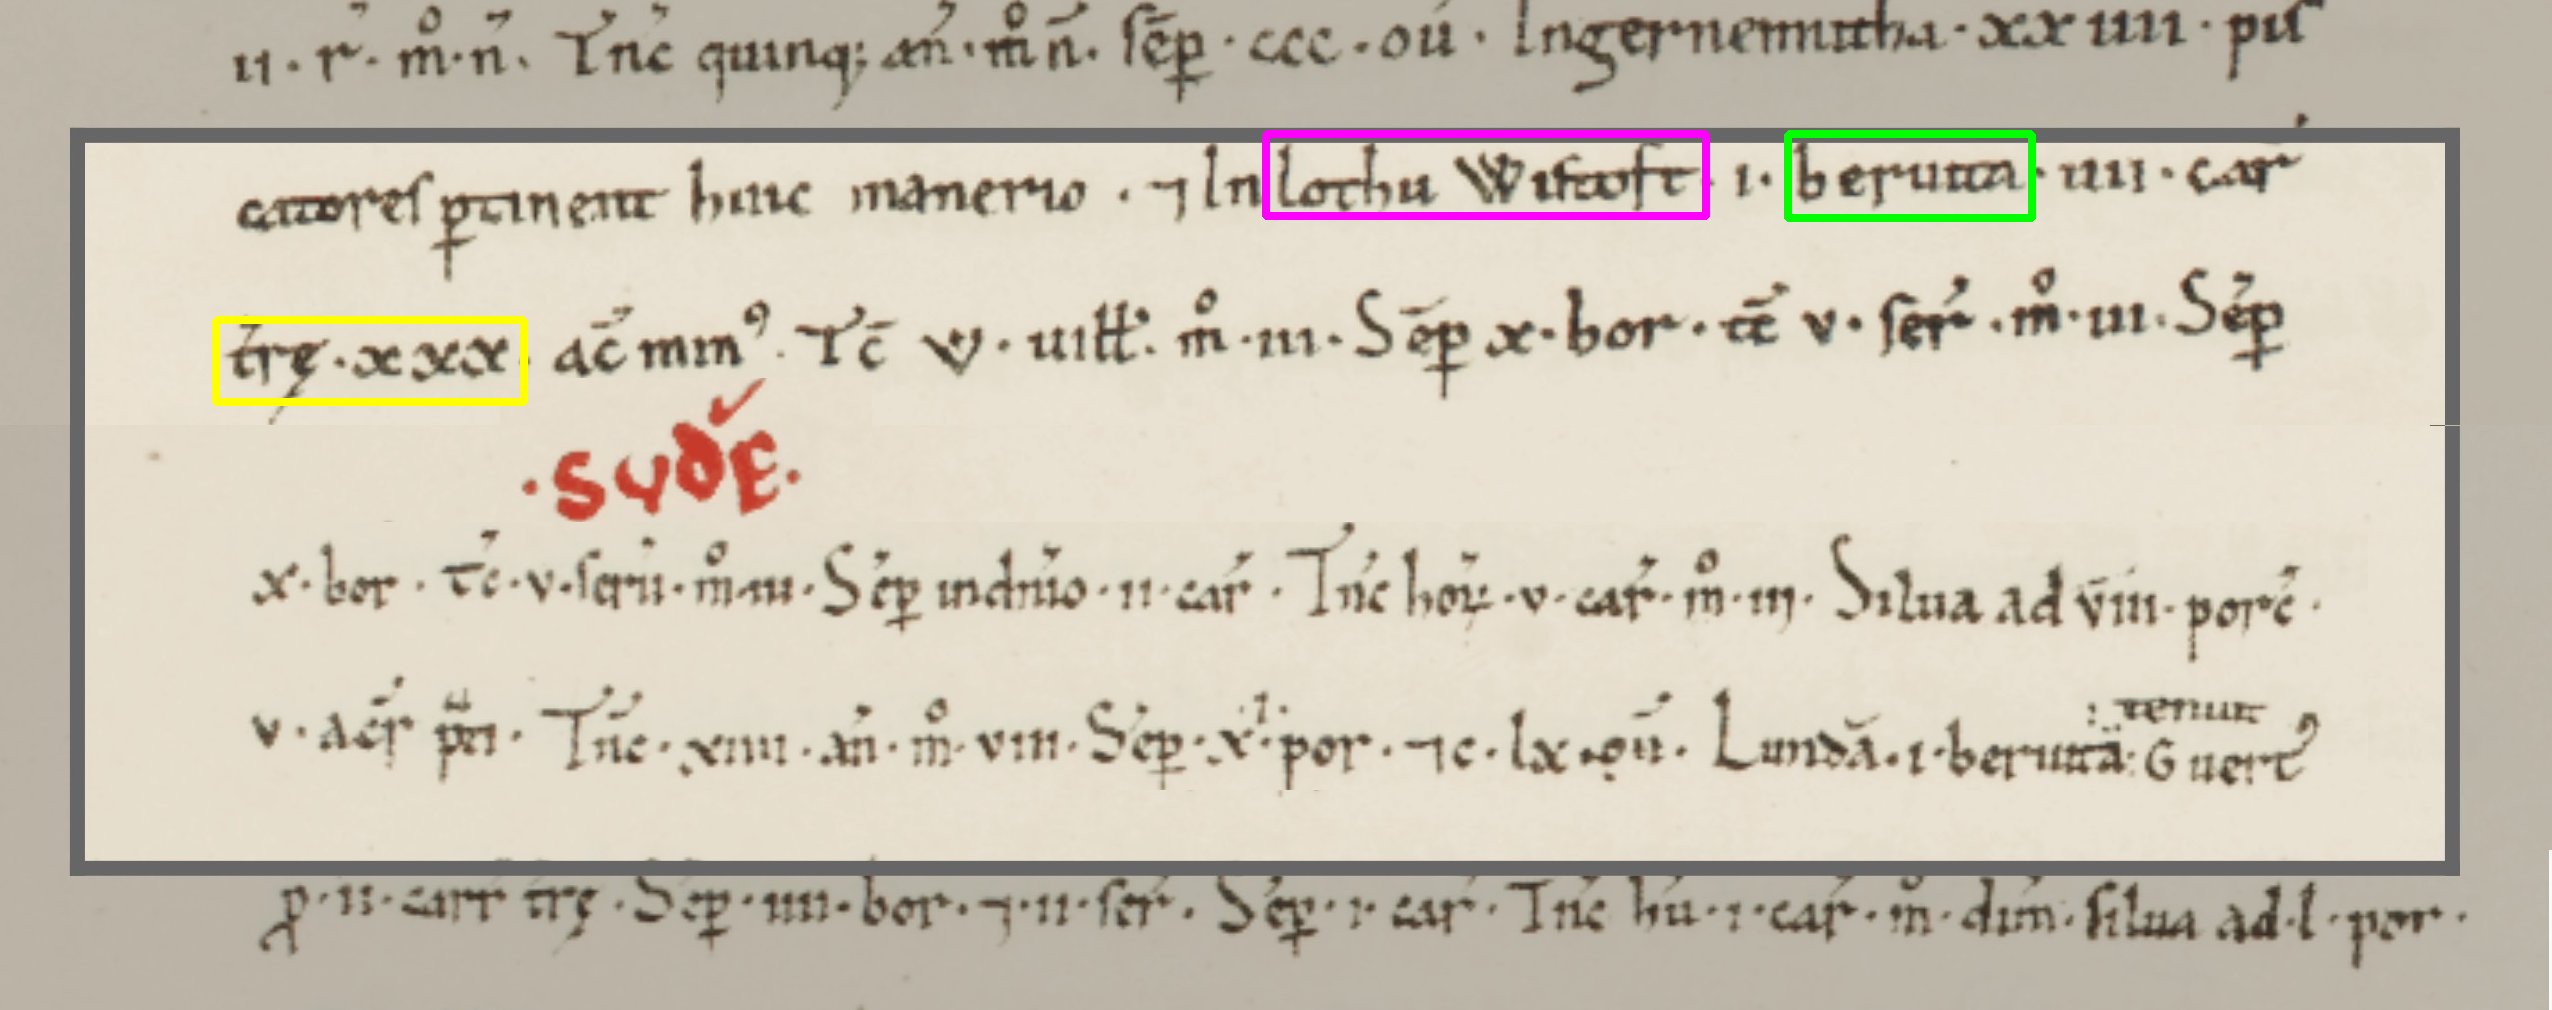 ii · r̃ · m̊ · ñ · Tñc quinq; añ · m̊ ñ · sēp · ccc · où · Ingernemutha · xx iiii · pis
catores ptinent huic manerio · ⁊ In lothu Wistoft · i · beruita · iiii · car̃
trę · xxx · ac̄ min⁹ · Tc̄ v · uiłł · m̊ · iii · Sēp x · bor · tc̄ v · ser̃ · m̊ · iii · Sēp
· SVDÉ ·
x · bor · tc̄ · v · seru̇ · m̊ · iii · Sēp indnīo · ii · car̃ · Tñc hoū · v · car̃ · m̊ · iii · Silua ad viii · porc̄ ·
v · acr̃ pti · Tñc · xiiii · añ · m̊ · viii · Sēp · xˡ · por · ⁊ c · lx · oũ · Lundā · i · beruitā : Guert⁹ : tenuit
ꝓ · ii · carr trę · Sēp · iiii · bor · ⁊ · ii · ser̃ · Sēp · i · car̃ · Tñc hū · i · car̃ · m̊ · dim̃ · silua ad · l · por ·